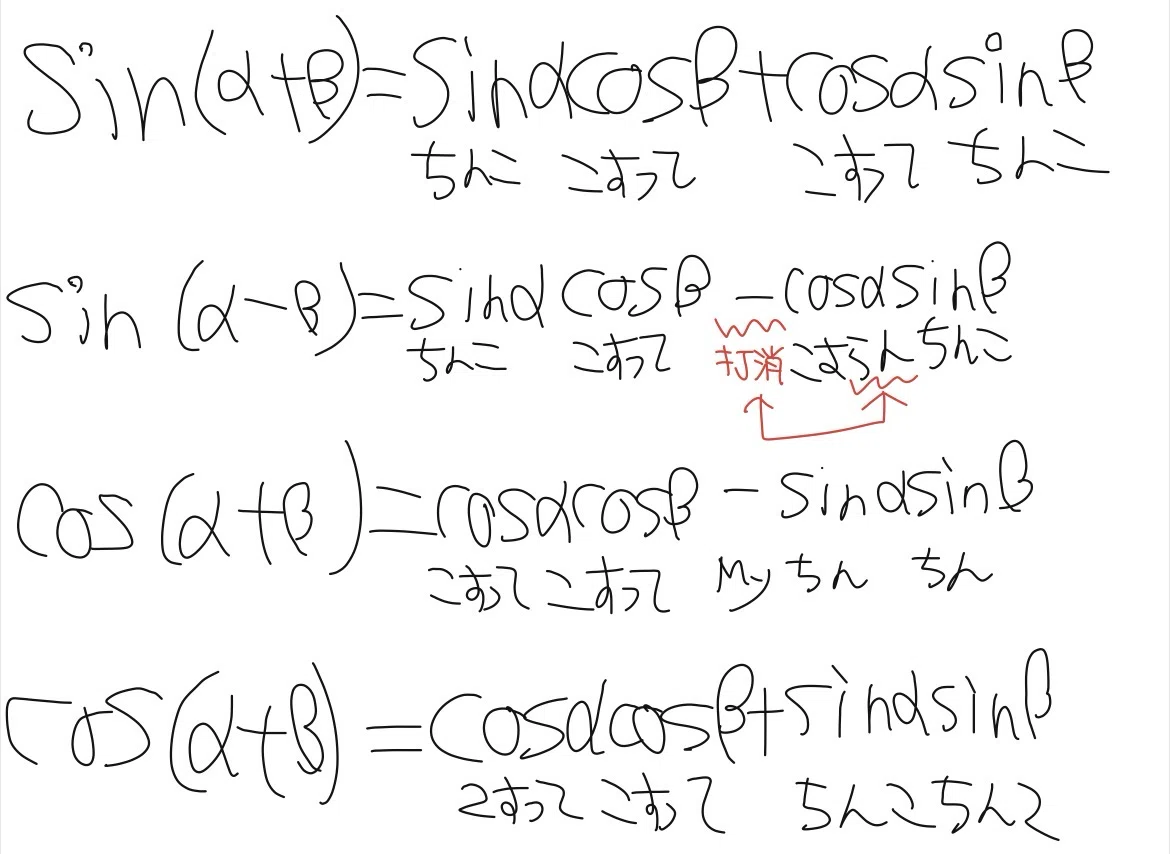 sin(α+β)=sinαcosβ+cosαsinβ
ちんこ こすって こすって ちんこ
sin(α-β)=sinαcosβ-cosαsinβ
ちんこ こすって 打消 こすらん ちんこ
cos(α+β)=cosαcosβ-sinαsinβ
こすってこすって My ちん ちん
cos(α+β)=cosαcosβ+sinαsinβ
こすってこすって ちんこちんこ